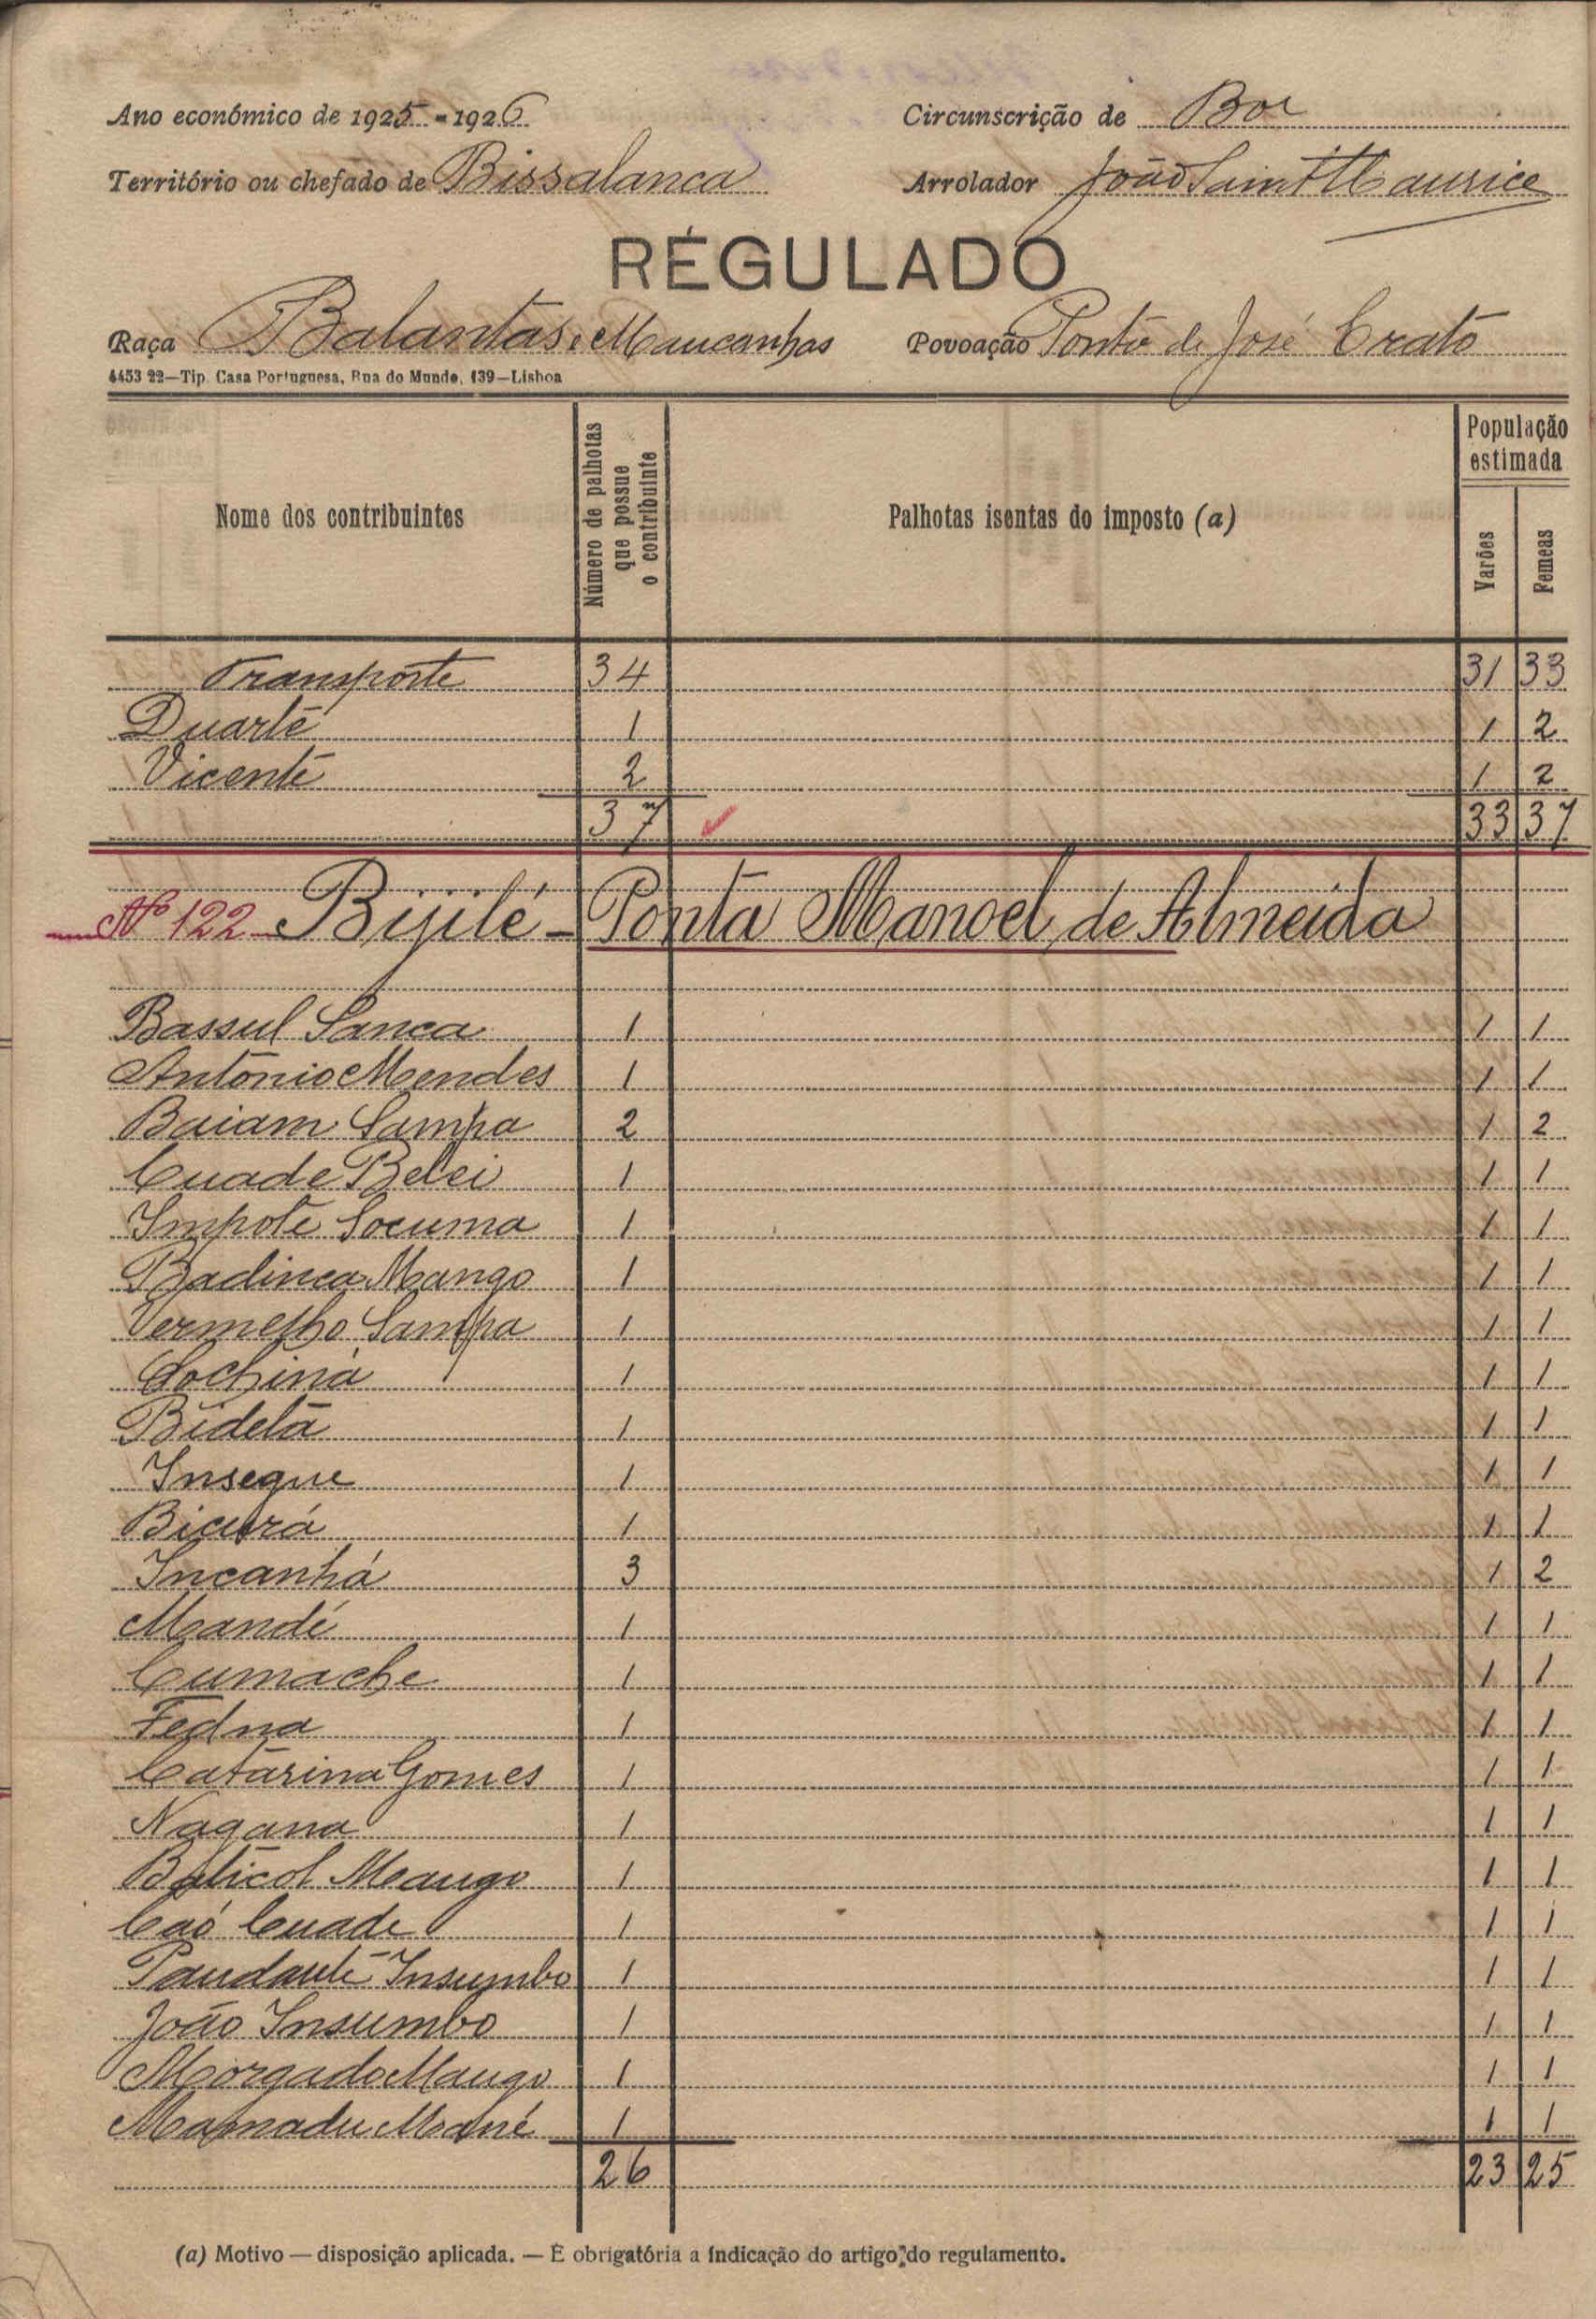 Ano económico de 1925-1926 Circunscrição de Bor
Território ou chefado de Bissalanca Arrolador João Saint Maurice
RÉGULADO
Raça Balantas e Mancanhas Povoação Ponta de José Crato
4453 22—Tip. Casa Portuguesa, Rua do Mundo, 139—Lisboa
Nome dos contribuintes Número de palhotas que possue o contribuinte Palhotas isentas do imposto (a) População estimada Varões Femeas
Transporte 34 31 33
Duarte 1 1 2
Vicente 2 1 2
37 33 37
Nº 122 Bijilé - Ponta Manoel de Almeida
Bassul Sanca 1 1 1
António Mendes 1 1 1
Baiam Sampa 2 1 2
Cuade Belei 1 1 1
Impote Socuma 1 1 1
Badinca Mango 1 1 1
Vermelho Sampa 1 1 1
Cochiná 1 1 1
Bidetã 1 1 1
Inseque 1 1 1
Bicurá 1 1 1
Incanhá 3 1 2
Mandé 1 1 1
Cumache 1 1 1
Fedna 1 1 1
Catarina Gomes 1 1 1
Nagana 1 1 1
Baticol Mango 1 1 1
Caó Cuade 1 1 1
Paudanté Insumbo 1 1 1
João Insumbo 1 1 1
Morgado Mango 1 1 1
Mamadu Mané 1 1 1
26 23 25
(a) Motivo — disposição aplicada. — É obrigatória a indicação do artigo do regulamento.